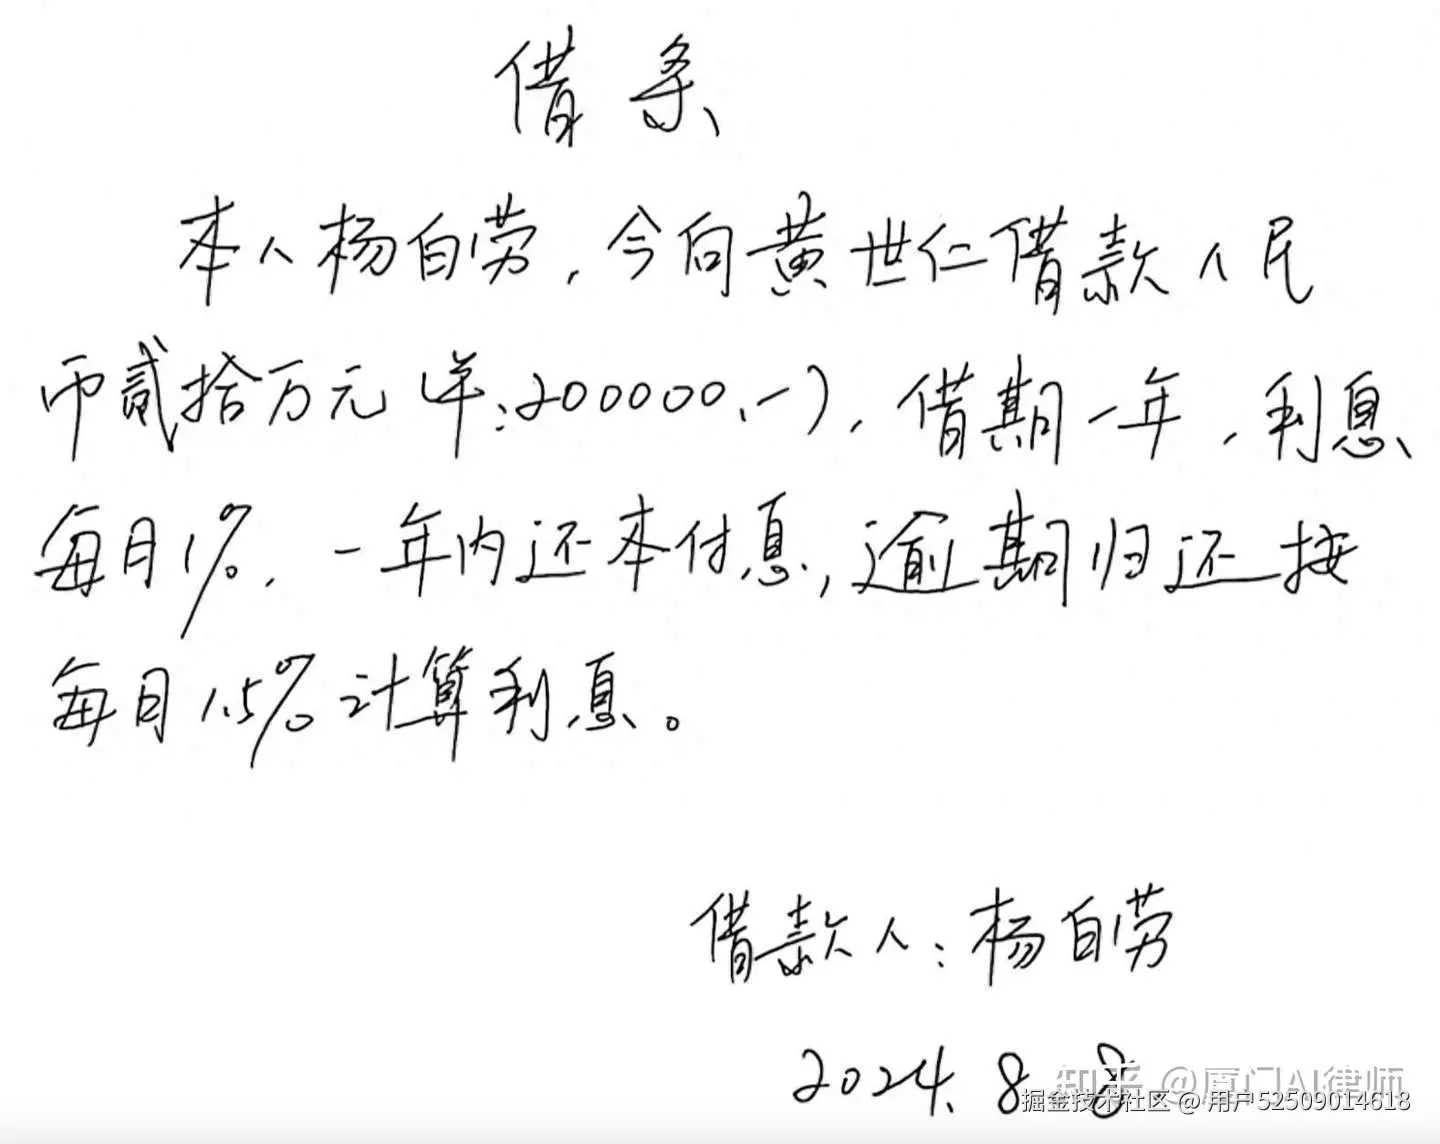 借条
本人杨白劳，今向黄世仁借款人民
币贰拾万元（羊：200000.-），借期一年，利息
每月1%，一年内还本付息，逾期归还按
每月1.5%计算利息。
借款人：杨白劳
2024.8.8
知乎 @厦门AI律师
掘金技术社区 @ 用户52509014618